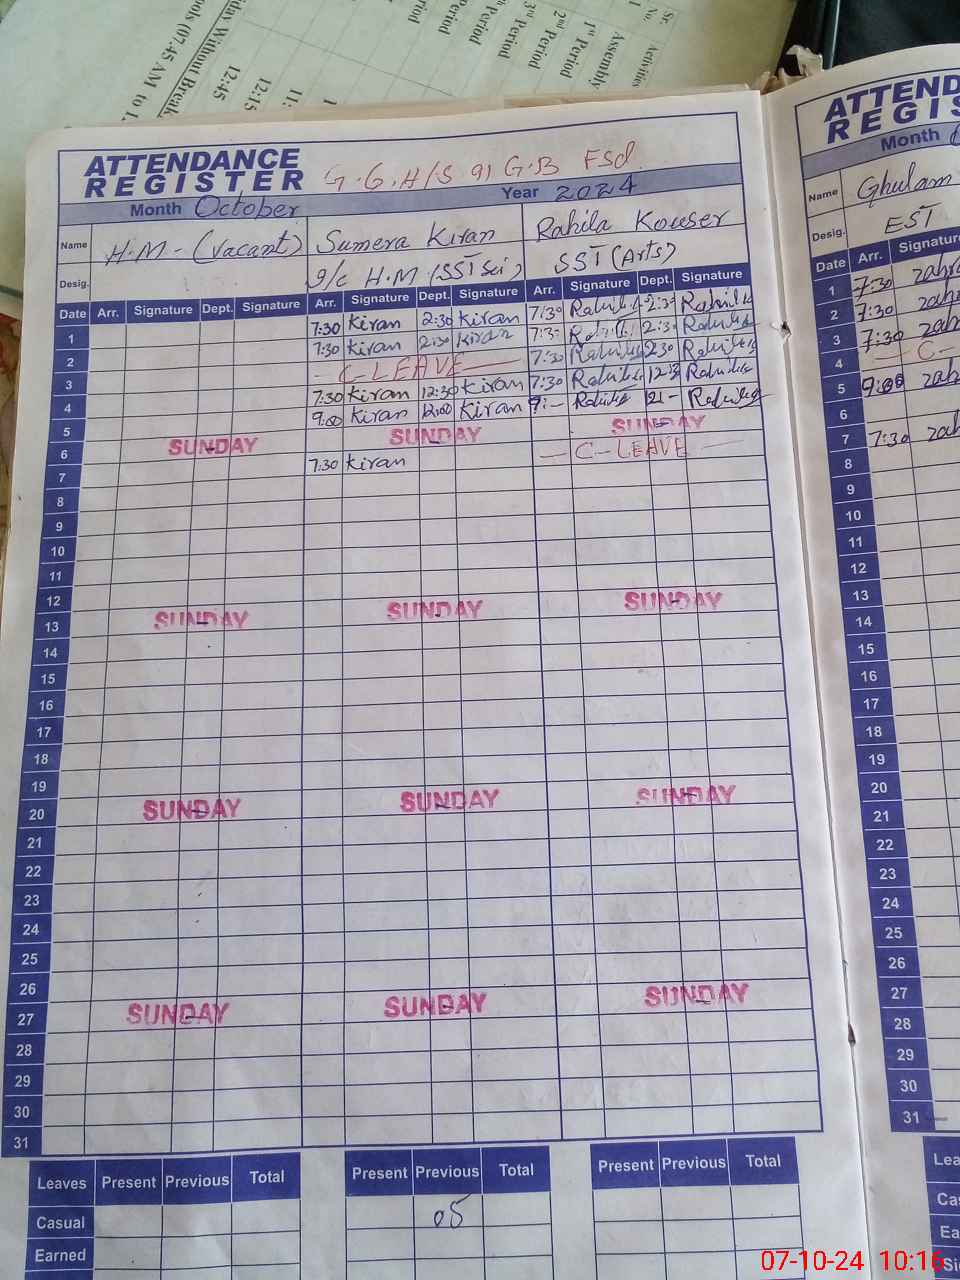 Sr. No
Activities
1
Assembly
1st Period
2nd Period
3rd Period
Period
Period
Period
12:15
12:45
day Without Break
ools (07:45 AM to 1
ATTENDANCE
REGISTER
G.G.H/S 91 G.B FSd
Month October
Year 2024
Name H.M-(Vacant) Sumera Kiran Rahila Kouser
Desig. I/c H.M (SST Sci) SST (Arts)
Date Arr. Signature Dept. Signature Arr. Signature Dept. Signature Arr. Signature Dept. Signature
1 7:30 Kiran 2:30 Kiran 7:30 Rahila 2:30 Rahila
2 7:30 Kiran 2:30 Kiran 7:30 Rahila 2:30 Rahila
3 - C-LEAVE - 7:30 Rahila 2:30 Rahila
4 7:30 Kiran 12:30 Kiran 7:30 Rahila 12:30 Rahila
5 9:00 Kiran 12:00 Kiran 9:- Rahila 12- Rahila
6 SUNDAY SUNDAY SUNDAY
7 7:30 Kiran - C-LEAVE -
8
9
10
11
12
13 SUNDAY SUNDAY SUNDAY
14
15
16
17
18
19
20 SUNDAY SUNDAY SUNDAY
21
22
23
24
25
26
27 SUNDAY SUNDAY SUNDAY
28
29
30
31
Leaves Present Previous Total Present Previous Total Present Previous Total
Casual 05
Earned
ATTEND
REGIS
Month
Name Ghulam
Desig. EST
Date Arr. Signature
1 7:30 zahra
2 7:30 zah
3 7:30 zah
4 - C-
5 9:00 zah
6
7 7:30 zah
8
9
10
11
12
13
14
15
16
17
18
19
20
21
22
23
24
25
26
27
28
29
30
31
Lea
Cas
Ea
07-10-24 10:16